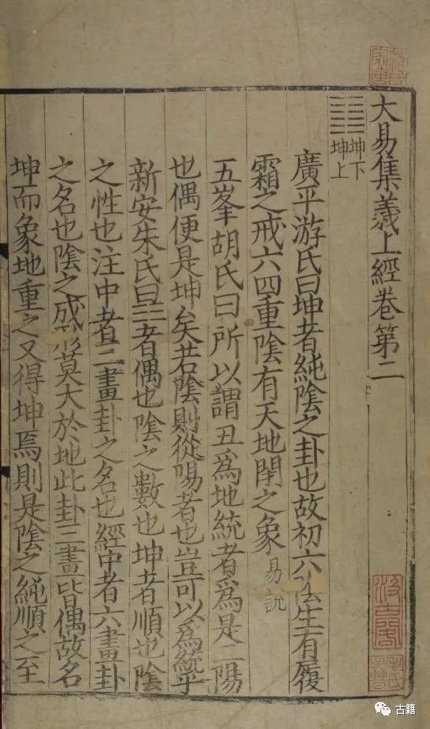 大易集義上經卷第二
䷁坤下
坤上
廣平游氏曰坤者純陰之卦也故初六始生有履
霜之戒六四重陰有天地閉之象易說
五峯胡氏曰所以謂丑爲地統者爲是二陽
也偶便是坤矣若陰則從陽者也豈可以爲統乎
新安朱氏曰⚋者偶也陰之數也坤者順也陰
之性也注中者三畫卦之名也經中者六畫卦
之名也陰之成形莫大於地此卦三畫皆偶故名
坤而象地重之又得坤焉則是陰之純順之至
汲古閣
古籍